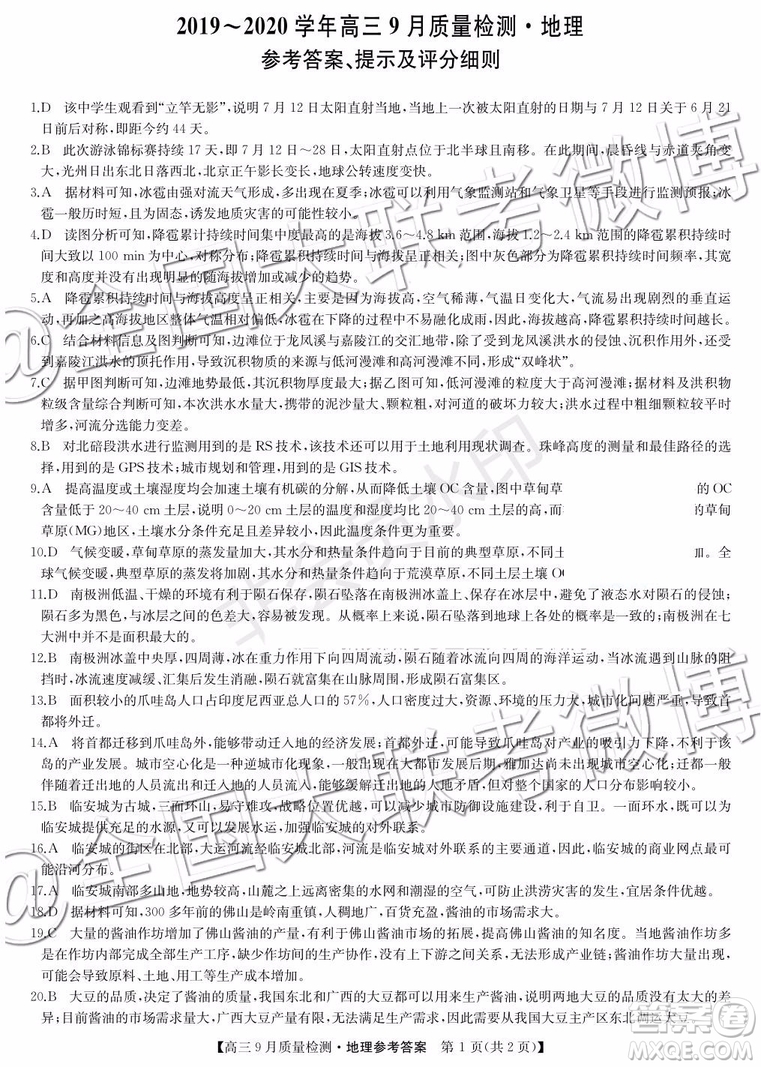 2019～2020 学年高三 9 月质量检测·地理
参考答案、提示及评分细则
1.D 该中学生观看到“立竿无影”,说明 7 月 12 日太阳直射当地,当地上一次被太阳直射的日期与 7 月 12 日关于 6 月 21
日前后对称,即距今约 44 天。
2.B 此次游泳锦标赛持续 17 天,即 7 月 12 日～28 日,太阳直射点位于北半球且南移。在此期间,晨昏线与赤道夹角变大,
光州日出东北日落西北,北京正午影长变长,地球公转速度变快。
3.A 据材料可知,冰雹由强对流天气形成,多出现在夏季;冰雹可以利用气象监测站和气象卫星等手段进行监测预报;冰
雹持续时间短,且为固态,诱发地质灾害的可能性较小。
4.D 读图分析可知,降雹累计持续时间集中度最高的是海拔 3.6～4.8 km 范围,海拔 1.2～2.4 km 范围的降雹累积持续时
间大致以 100 min 为中心,对称分布;图中灰色部分为降雹累积持续时间频率,其宽
度也并没有出现明显的随海拔增加或减少的趋势。
5.A 降雹累积持续时间与海拔高度呈正相关,主要是因为随着海拔升高,空气稀薄,气温日变化大,气流易出现剧烈的垂直运
动,再加之高海拔地区整体气温较低,冰雹在下降的过程中不易融化成雨,因此,海拔越高,降雹累积持续时间越长。
6.C 结合材料信息及图判断可知,边滩位于龙凤溪与嘉陵江的交汇地带,除了受到龙凤溪洪水的侵蚀、沉积作用外,还受
到嘉陵江洪水的顶托作用,导致沉积物质的来源与低河漫滩和高河漫滩不同,形成“双峰状”。
7.C 据甲图判断可知,边滩地势最低,其沉积物厚度最大;据乙图可知,低河漫滩的粒度大于高河漫滩;据材料及洪积物
粒级含量综合判断可知,本次洪水水量大,携带的泥沙量大、颗粒粗,对河道的破坏力较大;粗细颗粒含量较平时
增多,河流分选能力变差。
8.B 对北碚段洪水进行监测用到的是 RS 技术,该技术还可以用于土地利用现状调查。珠峰高度的测量和最佳路径的选
择,用到的是 GPS 技术;城市规划和管理,用到的是 GIS 技术。
9.A 提高温度或土壤湿度均会加速土壤有机碳的分解,从而降低土壤 OC 含量,图中草甸草 的 OC
含量低于 20～40 cm 土层,说明 0～20 cm 土层的温度和湿度均比 20～40 cm 土层的高,而 的草甸
草原(MG)地区,土壤水分条件充足且差异较小,因此,热量条件差异较大。
10.D 气候变暖,草甸草原的蒸发量加大,其水分和热量条件趋向于目前的典型草原,不同 加。全
球气候变暖,典型草原的蒸发量加大,其水分和热量条件趋向于荒漠草原,不同土层土
11.D 南极洲低温、干燥的环境有利于陨石保存,陨石坠落在南极洲冰盖上、保存在冰层中,避免了液态水对陨石的侵蚀;
陨石多为黑色,与冰之间的色差大,容易被发现。从概率上来看,陨石坠落到地球上各处的概率是一致的;南极洲在七
大洲中并不是面积最大的。
12.B 南极洲冰盖中央厚,四周薄,冰在重力作用下向四周流动,陨石随着冰一起向四周的海洋运动,当冰流遇到山脉的阻
挡时,冰流速度减缓、汇集后发生消融,陨石就富集在山脉周围,形成陨石富集区。
13.B 面积较小的爪哇岛人口占印度尼西亚总人口的 57%,人口密度过大,资源、环境的压力大,城市化问题严重,导致首
都将外迁。
14.A 将首都迁到爪哇岛外,能够带动迁入地的经济发展;首都外迁,可能导致爪哇岛对产业的吸引力下降,不利于该
岛的产业发展。城市空心化是一种逆城市化现象,一般出现在发达国家,雅加达尚未出现城市空心化;迁都一般
伴随着迁出地的人员流出和迁入地的人员流入,但对整个国家的人口分布影响较小。
15.B 临安城为古城,三面环山,易守难攻,战略位置优越,可以减少城市防御设施建设,利于自卫。一面环水,既可以为
临安城提供充足的水源,又可以发展水运,加强临安城的对外联系。
16.A 临安城的街区在北部,大运河流经北部,河流是临安城与外界联系的主要交通方式,因此,临安城的商业网点最可
能沿河分布。
17.A 临安城南部多山地,地势较高,山麓之上拥有密集的水网和潮湿的空气,可防止洪涝灾害的发生,宜居条件优良。
18.D 据材料可知,300 多年前的佛山是岭南重镇,人稠地广,百货充盈,酱油的市场需求大。
19.C 大量的酱油作坊增加了佛山酱油的产量,有利于扩大佛山酱油的市场占有率,提高佛山酱油的知名度。当地的酱
油作坊内部完成全部生产工序,缺少作坊间的生产协作,没有上下游产业的协作。酱油作坊大量出现,可能会
导致原料、土地、用工等生产成本增加。
20.B 大豆的品质,决定了酱油的质量,我国东北和广西的大豆都可以满足生产需求,说明两地大豆的品质都较高。改
【高三 9 月质量检测·地理参考答案 第 1 页(共 2 页)】
@全国大联考微博
@全国大联考微博
非会员水印
答案圈
MXQE.COM